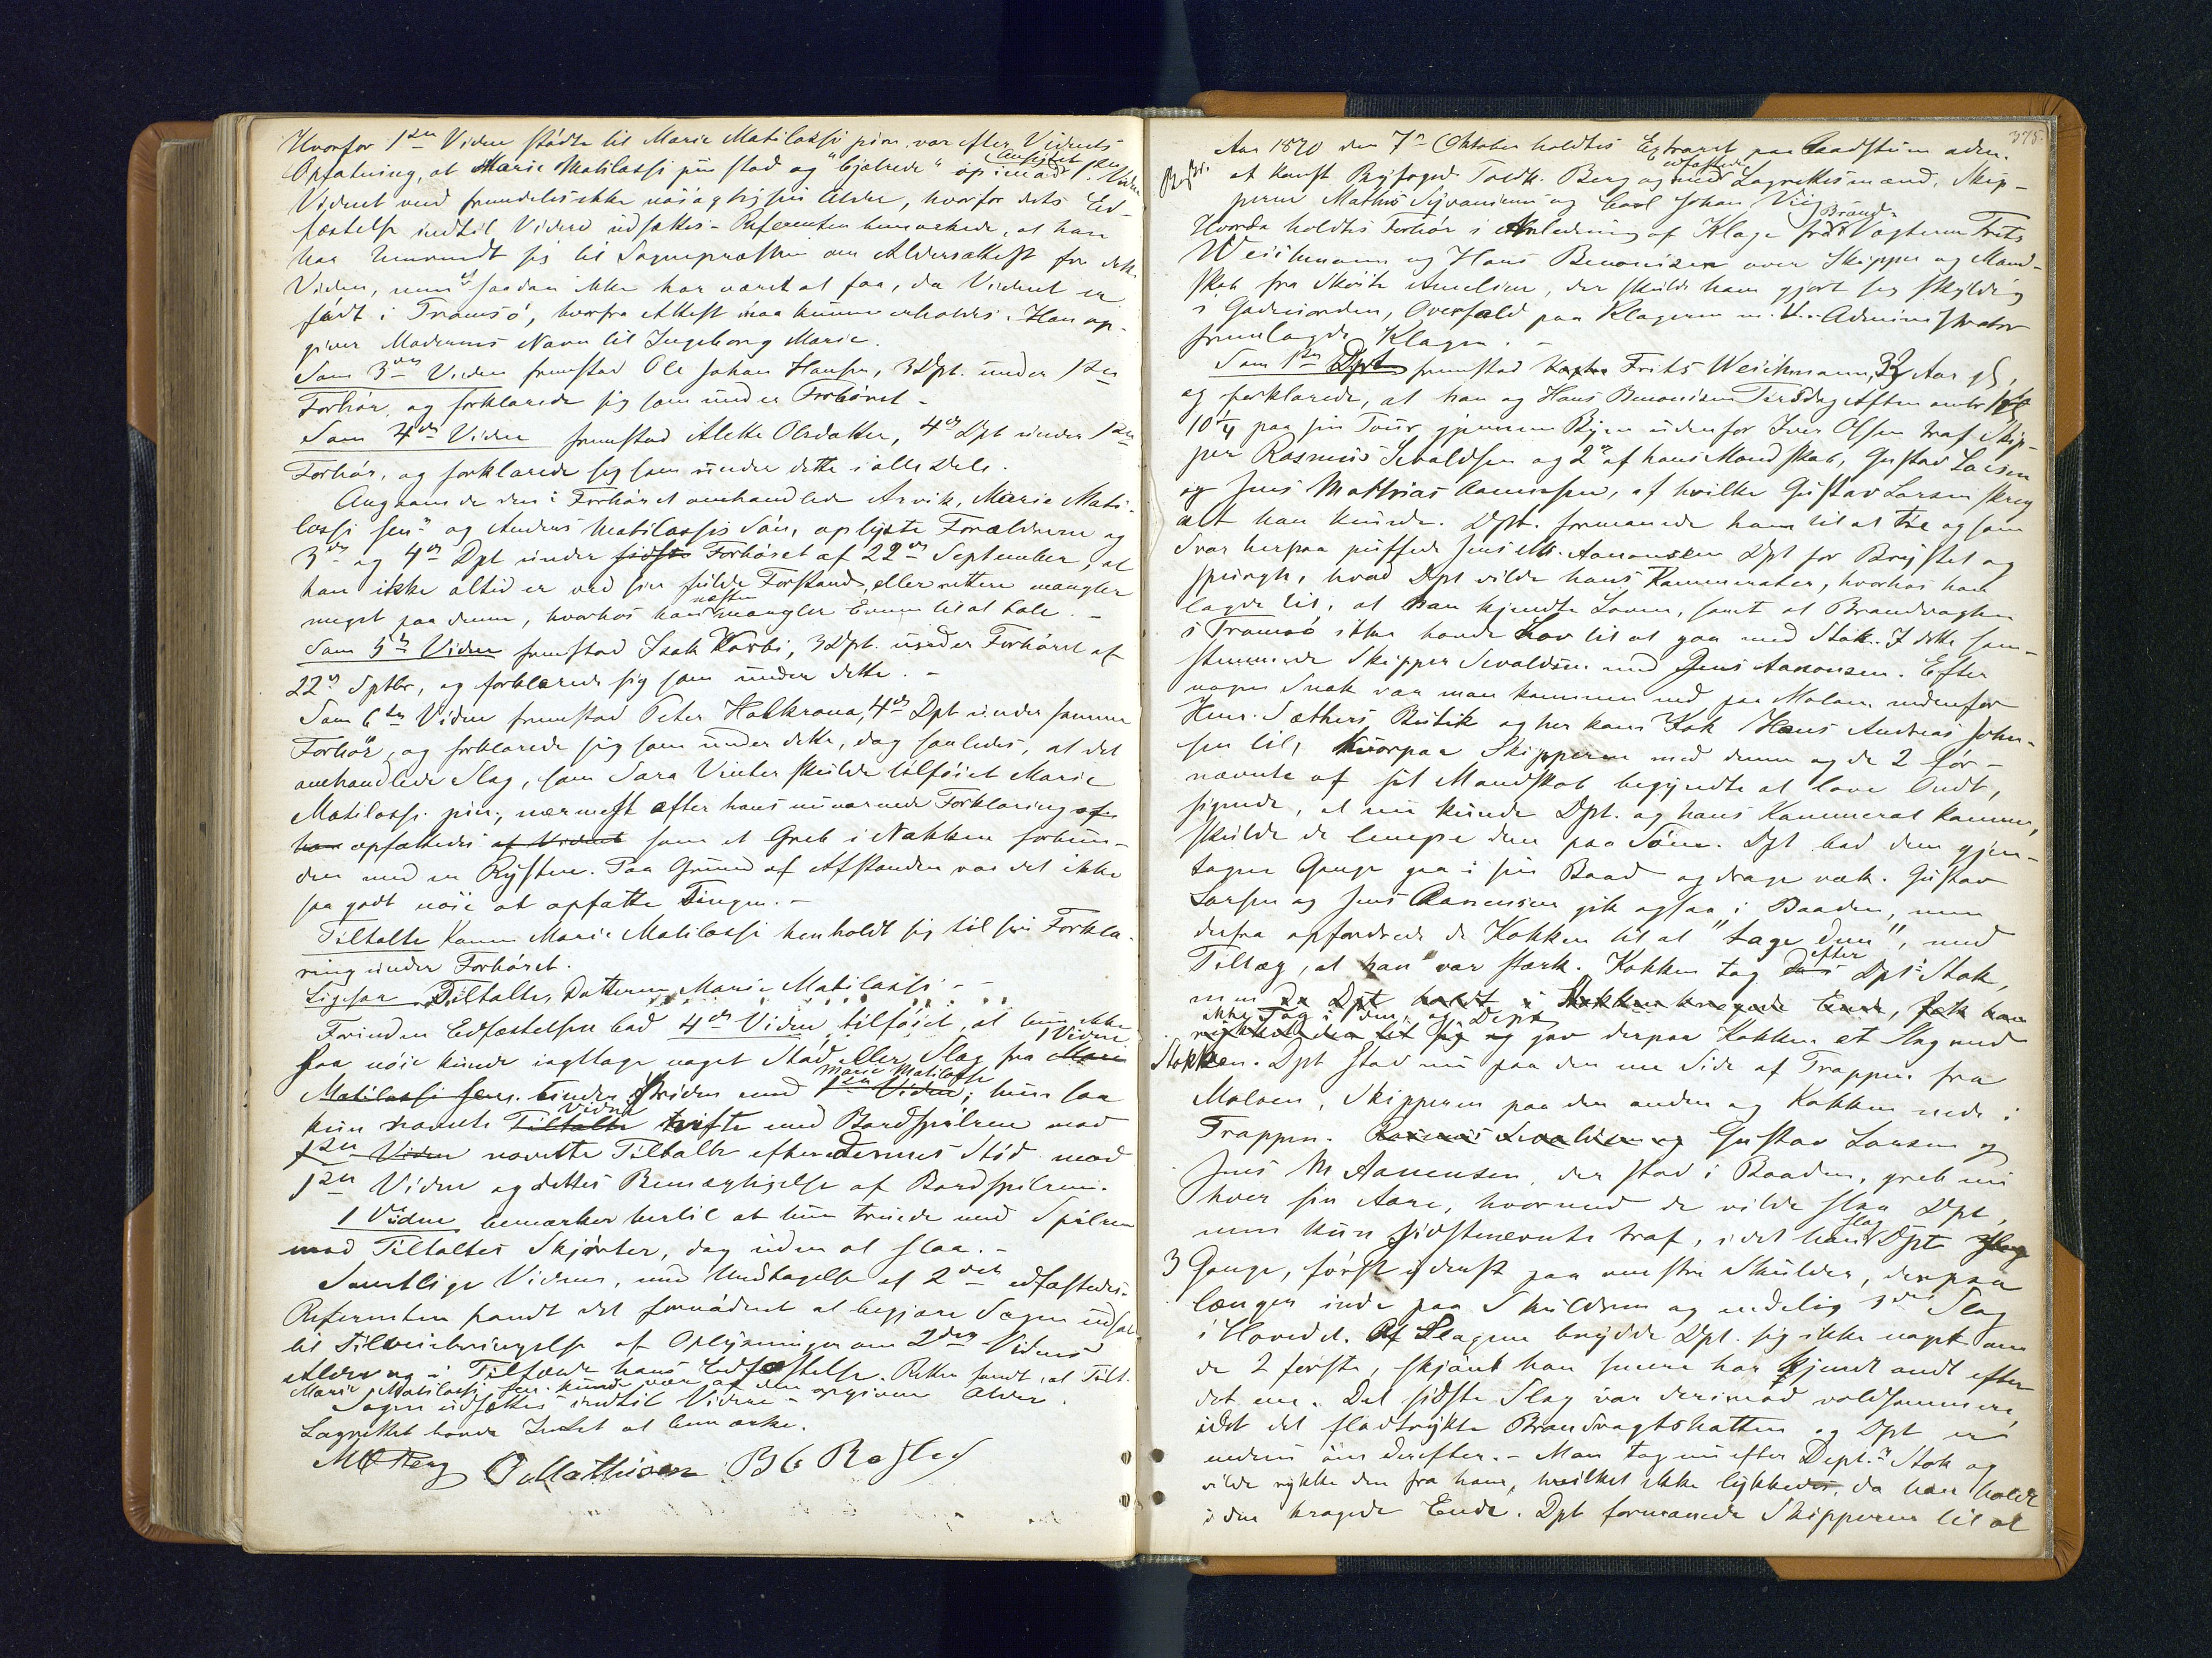 Hvorfor 1ste Vidne stødte til Marie Matilassi jun. var efter Vidnets
Opfatning, at Marie Matilassi jun stod og "bjælrede" op imod 1ste Vidnes Ansigtet
Vidnet veed fremdeles ikke nøiagtig sin Alder, hvorfor dets Ed-
fæstelse indtil Videre udsættes - Referenten bemærkede, at han
har henvendt sig til Sognepræsten om Aldersattest for dette
Vidne, men at saadan ikke har været at faa, da Vidnet er
født i Tromsø, hvorfra Attest maa kunne erholdes. Han op-
giver Moderens Navn til Ingeborg Marie.
Som 3die Vidne fremstod Ole Johan Hansen, 3 Dpt. under 1ste
Forhør, og forklarede sig som under Forhøret -
Som 4de Vidne fremstod Alette Olsdatter, 4de Dpt under 1ste
Forhør, og forklarede sig som under dette i alle Dele.
Angaaende den i Forhøret omhandlede Arvik, Marie Mati-
lassi sen. og Anders Matilassis Søn, oplyste Forældrene og
3die og 4de Dpt under sidste Forhøret af 22de September, at
han ikke altid er ved sin fulde Forstand, eller rettere mangler
meget paa denne, hvorhos han næsten mangler Evnen til at tale. -
Som 5te Vidne fremstod Isak Karbi, 3 Dpt. under Forhøret af
22de Septbr, og forklarede sig som under dette. -
Som 6te Vidne fremstod Peter Halkrona, 4de Dpt under samme
Forhør, og forklarede sig som under dette, dog saaledes, at det
omhandlede Slag, som Sara Vinter skulde tilføiet Marie
Matilassi jun., nærmest efter hans nuværende Forklaring af
ham opfattedes af Vidnet som et Greb i Nakken forbun-
den med en Rysten. Paa Grund af Afstanden var det ikke
saa godt nøie at opfatte Tingen. -
Tiltalte Kone Marie Matilassi henholdt sig til sin Forkla-
ring under Forhøret.
Ligesaa Tiltaltes Datteren Marie Matilassi -
Forinden Edfæstelsen bad 4de Vidne tilføiet, at hun ikke
saa nøie kunde iagttage noget Stød eller Slag fra 1 Vidne Marie
Matilassi sen. under Striden med Marie Matilassi 1ste Vidne; hun saa
kun navnte Vidne Tiltalte vifte med Bordspilene mod
1ste Vidne navnte Tiltalte efter dennes Stød mod
1ste Vidne og dettes Bemægtigelse af Bordspilene.
1 Vidne bemærker hertil at hun truede med Spilene
mod Tiltaltes Skjørter, dog uden at slaa. -
Samtlige Vidner, med Undtagelse af 2det edfæstedes.
Referenten fandt det fornødent at begjære Sagen udsat
til Tilveiebringelse af Oplysninger om 2det Vidnes
Alder og i Tilfælde hans Edfæstelse. Retten fandt, at Tilt.
Marie Matilassi sen. kunde være af den opgivne Alder.
Sagen udsattes indtil Videre -
Lagrettet havde Intet at bemærke.
M Berg O Mathisen B G Rasted
375.
Aar 1870 den 7de Oktober holdtes Extraret paa Raadstuen adm.
af Konst Byfoged Toldk. Berg og med edfæstede Lagrettesmænd, Skip-
perne Mathis Sivansen og Carl Johan Vig
Hvorda holdtes Forhør i Anledning af Klage fra Brand-Vagterne Frits
Weichmann og Hans Benonisen over Skipper og Mand-
skab fra Skøite Amelsine, der skulde have gjort sig skyldig
i Gadeuorden, Overfald paa Klagerne m. V. - Administrator
fremlagde Klagen. -
Som 1ste Dpt fremstod Vagter Frits Weichmann, 32 Aar gl,
og forklarede, at han og Hans Benonisen Tirsdag Aften omtr Kl
10 1/4 paa sin Tour gjennem Byen udenfor Iver Olsen traf Skip-
per Rasmus Sevaldsen og 2de af hans Mandskab, Gustav Larsen
og Jens Mathias Aanensen, af hvilke Gustav Larsen skreg
alt han kunde. Dpt. formanede ham til at tie og som
Svar herpaa puffede Jens M. Aanonsen Dpt for Brystet og
spurgte, hvad Dpt vilde hans Kammerater, hvorhos han
lagde til, at han kjendte Loven, samt at Brandvagten
i Tromsø ikke havde Lov til at gaa med Stok. I dette sam-
stemmede Skipper Sevaldsen med Jens Aanonsen. Efter
nogen Snak var man kommen ned paa Moloen nedenfor
Henr. Sæthers Butik og her kom Kok Hans Andreas John-
sen til, hvorpaa Skipperen med denne og de 2 før-
nævnte af sit Mandskab begyndte at love Ondt,
sigende, at nu kunde Dpt. og hans Kammerat komme,
skulde de lempe dem paa Søen. Dpt bad dem gjen-
tagne Gange gaa i sin Baad og drage væk. Gustav
Larsen og Jens Aanensen gik ogsaa i Baaden, men
derfra opfordrede de Kokken til at "tage dem", med
Tillæg, at han var stærk. Kokken tog efter Dpts Stok,
men da Dpt holdt i Stokkens kragede Ende, fik han
ikke Tag i den, og Dept
rykket den til sig og gav derpaa Kokken et Slag med
Stokken. Dpt stod nu paa den ene Side af Trappen fra
Moloen, Skipperen paa den anden og Kokken nede i
Trappen. Rasmus Sevaldsen og Gustav Larsen og
Jens M Aanensen, der stod i Baaden, greb nu
hver sin Aare, hvormed de vilde slaa Dpt,
men kun sidstnævnte traf, idet han slog Dpt
3 Gange, først yderst paa venstre Skulder, derpaa
længer inde paa Skulderen og endelig 3die Slag
i Hovedet. Af Slagene brydde Dpt. sig ikke noget om
de 2 første, skjønt han senere har kjendt ondt efter
det ene. Det sidste Slag var derimod voldsommere,
idet det fladtrykte Brandvagtshatten og Dpt er
endnu øm derefter. - Man tog nu efter Dept.s Stok og
vilde rykke den fra ham, hvilket ikke lykkedes, da han holdt
i den kragede Ende. Dpt formanede Skipperen til at